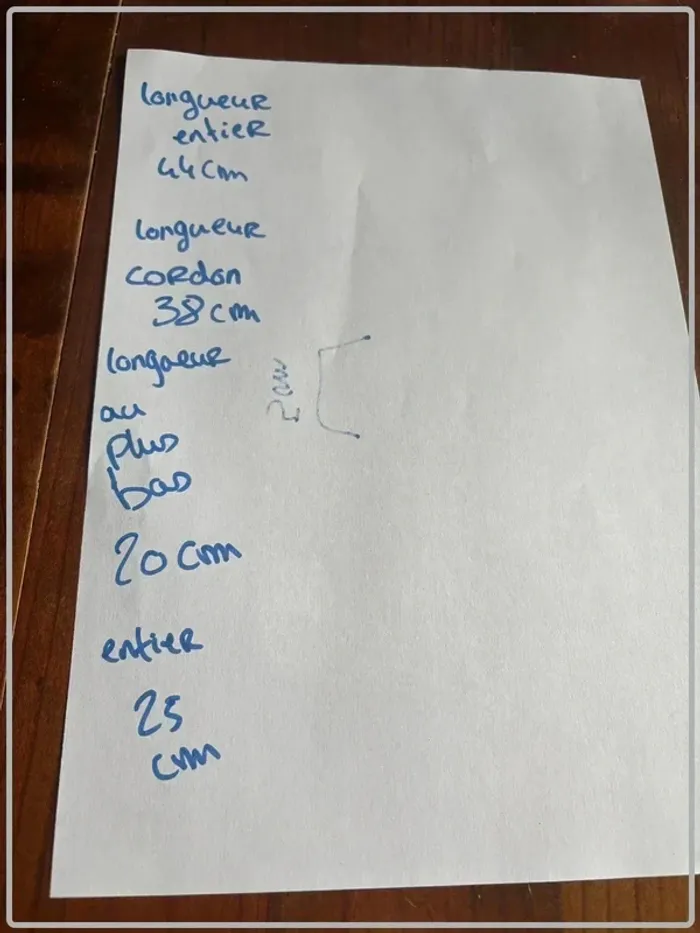 longueur
entier
44cm
longueur
cordon
38cm
longueur
au
plus
bas
20cm
entier
25
cm
2cm